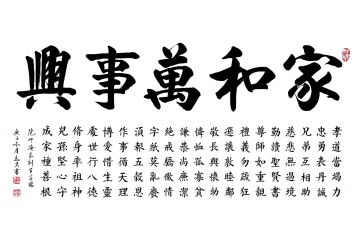 家和萬事興
孝道當竭力
忠勇表丹誠
兄弟互相助
慈悲無過境
勤讀聖賢書
尊師如重親
禮義勿疏狂
遜讓敦睦鄰
敬長與懷幼
憐恤孤寡貧
謙恭尚廉潔
絕戒驕傲情
字紙莫亂廢
須報五穀恩
作事循天理
博愛惜生靈
處世行八德
修身率祖神
兒孫堅心守
成家種善根
范仲淹家訓百字銘